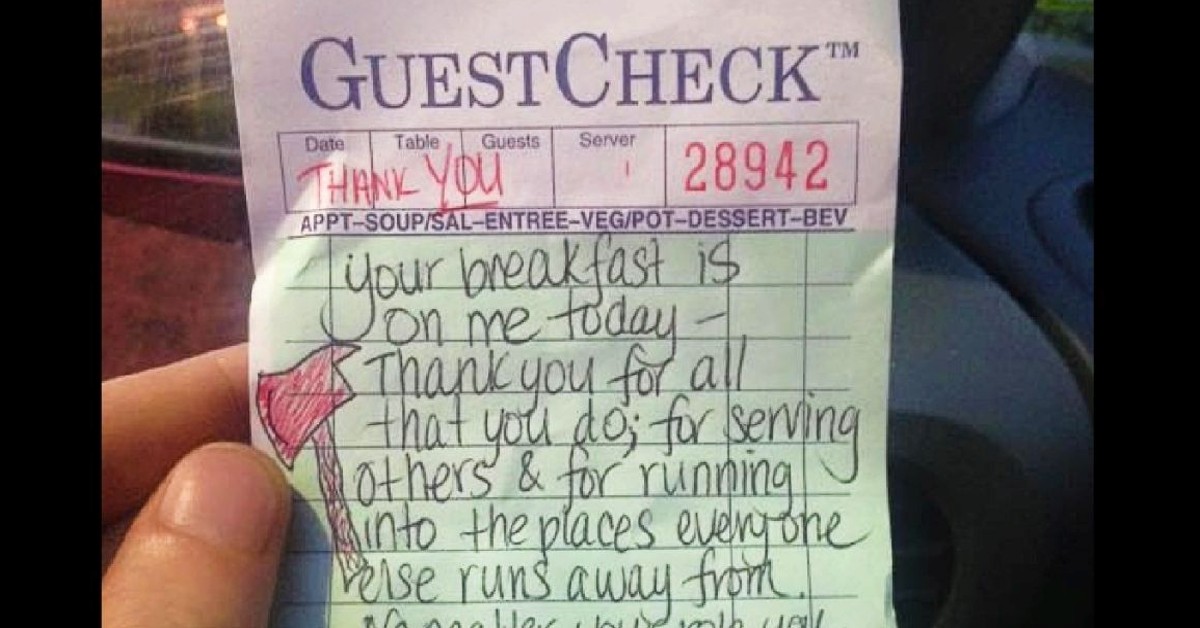 GUESTCHECK™
Date Table Guests Server
THANK YOU 28942
APPT–SOUP/SAL–ENTREE–VEG/POT–DESSERT–BEV
your breakfast is
on me today –
Thank you for all
that you do; for serving
others & for running
into the places everyone
else runs away from.